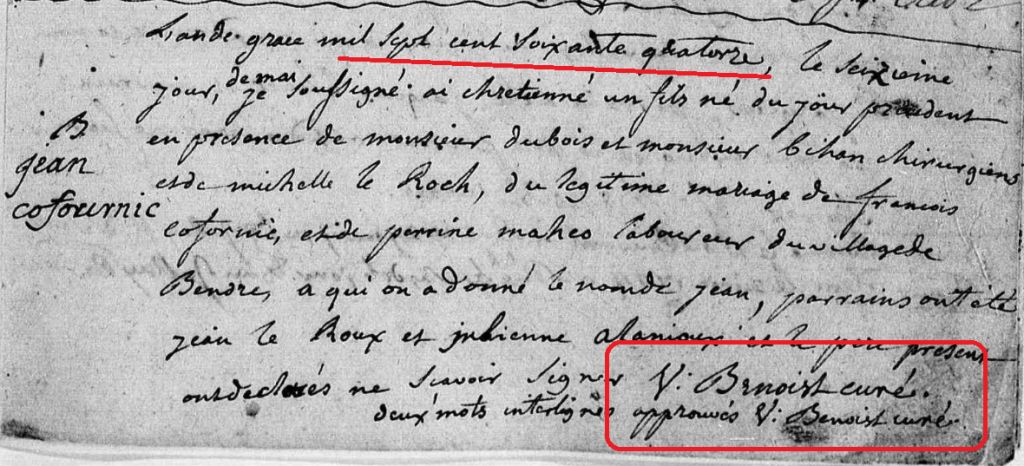 L'an de grace mil sept cent soixante quatorze, le seizieme
jour, de mai je soussigné ai chretienné un fils né du jour précedent
B.
jean
cofournic
en presence de monsieur dubois et monsieur bihan chirurgiens
et de michelle le Roch, du legitime mariage de francois
cofornic, et de perrine maheo laboureur du village de
Bendre, a qui on a donné le nom de jean, parrains ont été
jean le Roux et julienne et le pere present
ont declarés ne scavoir signer V: Benoist curé.
deux mots interlignes approuvés V: Benoist curé.